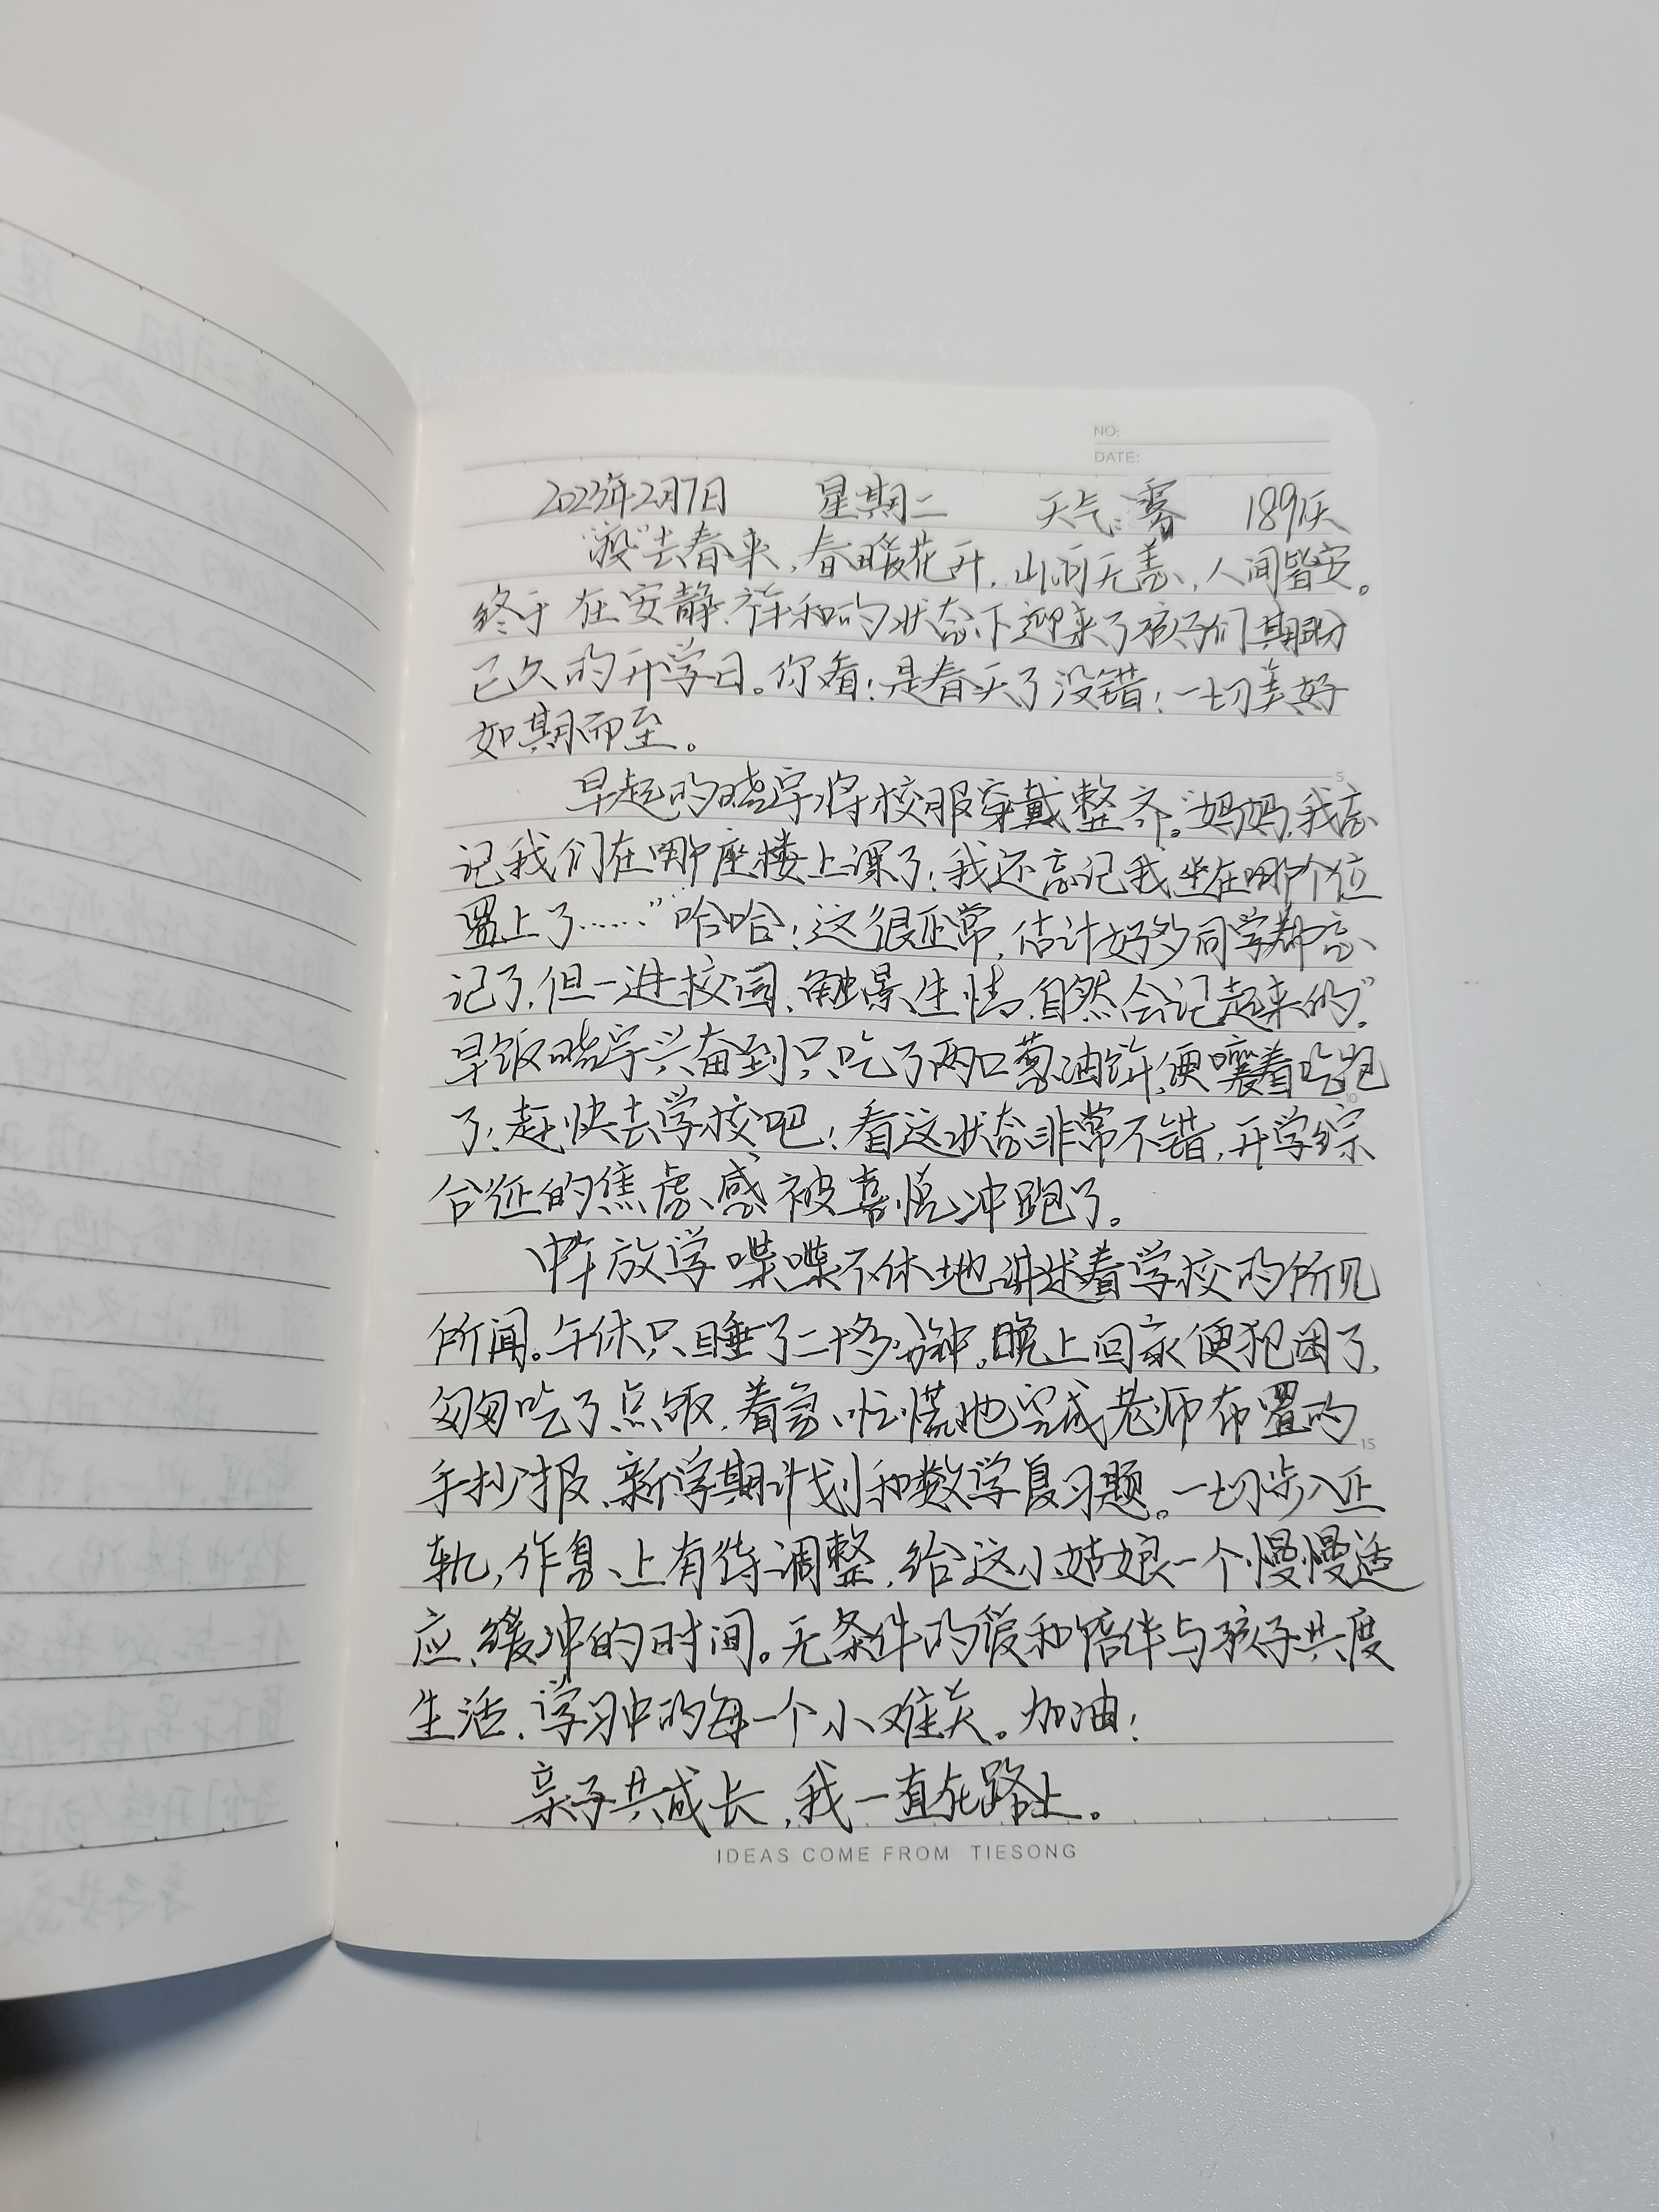 NO:
DATE:
2023年2月7日 星期二 天气:雾 189天
“疫”去春来,春暖花开,山河无恙,人间皆安。
终于在安静、祥和的状态下迎来了孩子们期盼
已久的开学日。你看!是春天了没错!一切美好
如期而至。
早起的晓宇将校服穿戴整齐。“妈妈,我忘
记我们在哪座楼上课了!我还忘记我坐在哪个位
置上了……”哈哈!这很正常,估计好多同学都忘
记了,但一进校园、触景生情,自然会记起来的”。
早饭晓宇兴奋到只吃了两口葱油饼,便嚷着吃饱
了!赶快去学校吧!看这状态非常不错,开学综
合征的焦虑感被喜悦冲跑了。
中午放学喋喋不休地讲述着学校的所见
所闻。午休只睡了二十多分钟,晚上回家便犯困了,
匆匆吃了点饭,着急、忙慌地完成老师布置的
手抄报、新学期计划和数学复习题。一切步入正
轨,作息上有待调整,给这小姑娘一个慢慢适
应、缓冲的时间。无条件的爱和陪伴与孩子共度
生活、学习中的每一个小难关。加油!
亲子共成长,我一直在路上。
5
10
15
IDEAS COME FROM TIESONG